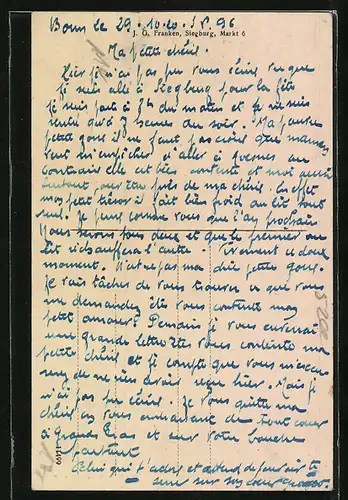 Bonn le 29.10.20. S.P. 96
J. G. Franken, Siegburg, Markt 6
Ma petite chérie.
Hier je n'ai pas pu vous écrire vu que
je suis allé à Siegburg pour la fête
je suis parti à 7h du matin et je ne suis
rentré qu'à 7 heures du soir. Ma pauvre
petite gosse il ne faut pas croire que maman
veut m'empêcher d'aller à au
contraire elle est bien contente et moi aussi
surtout pour être près de ma chérie. En effet
mon petit trésor il fait bien froid au lit tout
seul. Je pense comme vous que l'an prochain
nous serons tous deux et que le premier au
lit réchauffera l'autre. Vivement ce doux
moment. N'est-ce pas ma petite gosse.
Je vais tâcher de vous trouver ce que vous
me demandez êtes vous contente mon
petit amour? Demain je vous enverrai
une grande lettre êtes vous contente ma
petite chérie et je compte que vous m'excu
serez de ne rien avoir reçu hier. Mais je
n'ai pas pu chérie. Je vous quitte ma
chérie en vous embrassant de tout cœur
à grands bras et sur votre bouche
Celui qui t'adore et attend de pouvoir te
serrer sur son cœur